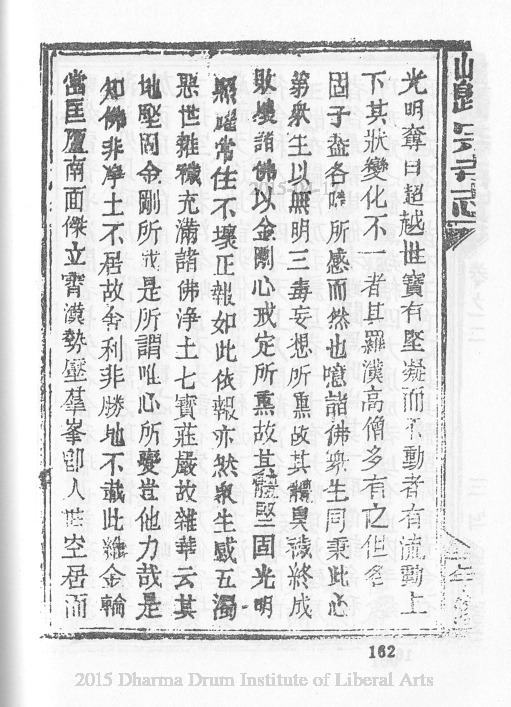 光明奪日超越世寶有堅凝而不動者有流動上
下其狀變化不一者其羅漢高僧多有之但名
固子盔各隨所感而然也噫諸佛衆生同秉此心
第衆生以無明三毒妄想所熏故其體臭穢終成
敗壞諸佛以金剛心戒定所熏故其體堅固光明
照曜常住不壞正報如此依報亦然衆生感五濁
惡世雜穢充滿諸佛淨土七寶莊嚴故雜華云其
地堅固金剛所成是所謂唯心所變豈他力哉是
知佛非淨土不居故舍利非勝地不藏此雖金輪
當匡廬南面傑立霄漢勢壓羣峯卽人世空居而
162
2015 Dharma Drum Institute of Liberal Arts